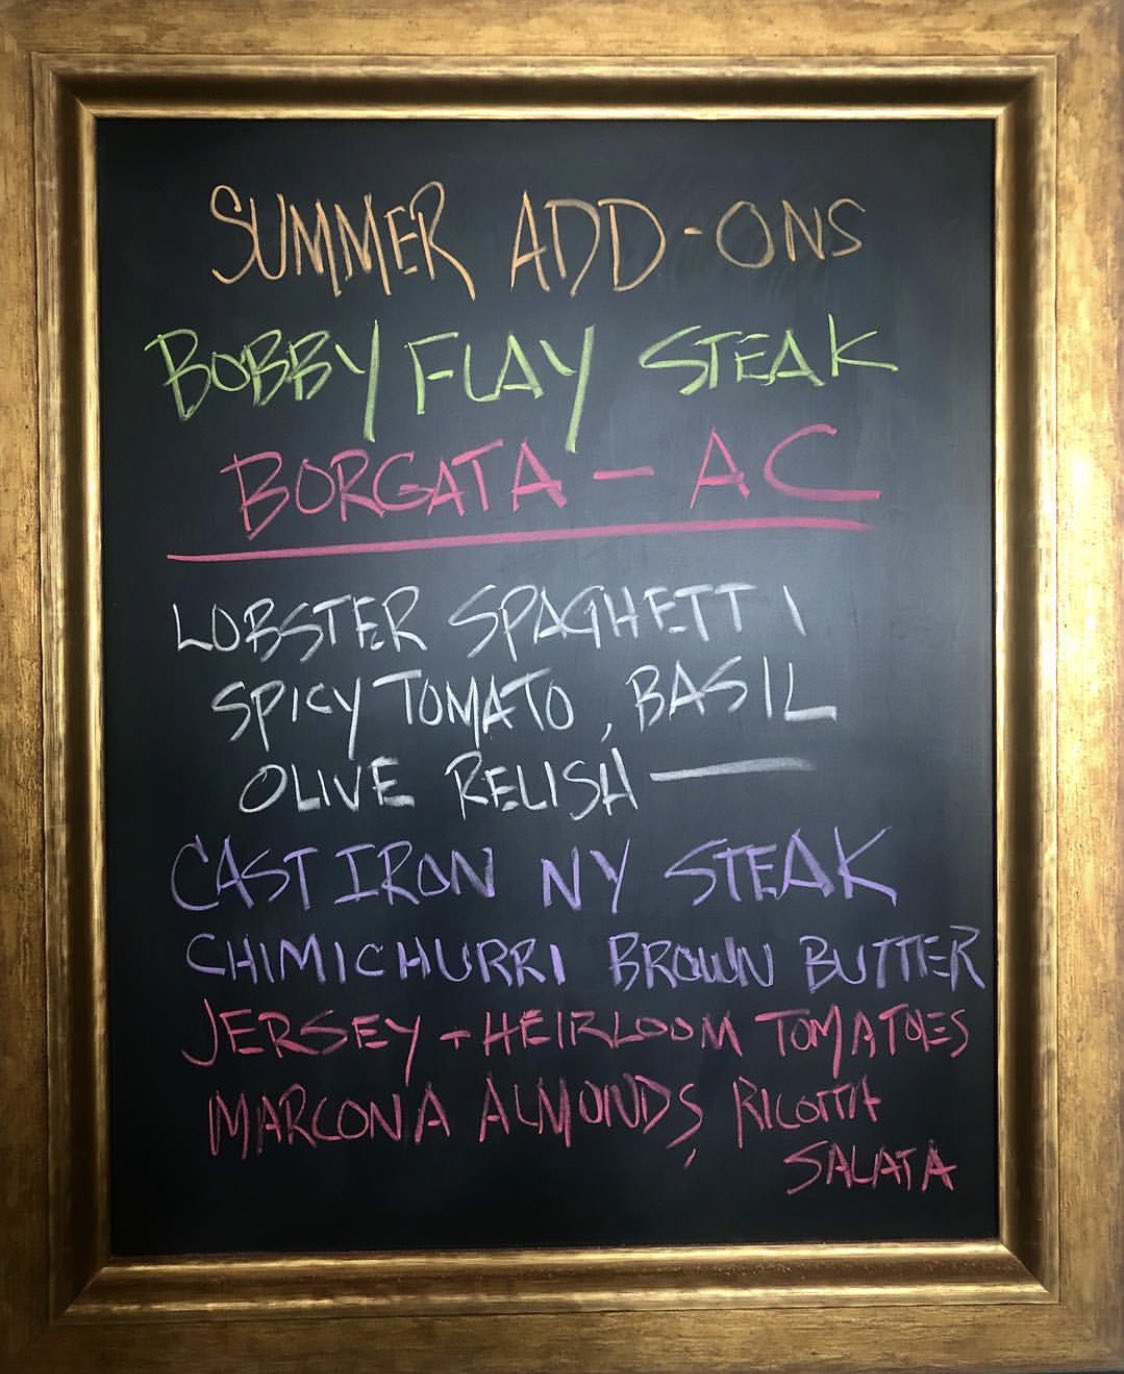 SUMMER ADD-ONS
BOBBY FLAY STEAK
BORGATA - AC
LOBSTER SPAGHETTI
SPICY TOMATO, BASIL
OLIVE RELISH —
CAST IRON NY STEAK
CHIMICHURRI BROWN BUTTER
JERSEY - HEIRLOOM TOMATOES
MARCONA ALMONDS, RICOTTA
SALATA